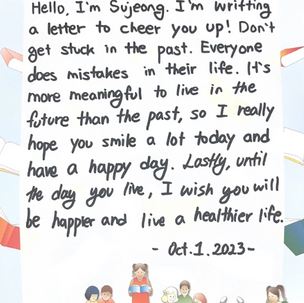 Hello, I'm Sujeong. I'm writting
a letter to cheer you up! Don't
get stuck in the past. Everyone
does mistakes in their life. It's
more meaningful to live in the
future than the past, so I really
hope you smile a lot today and
have a happy day. Lastly, until
the day you live, I wish you will
be happier and live a healthier life.
- Oct.1.2023-